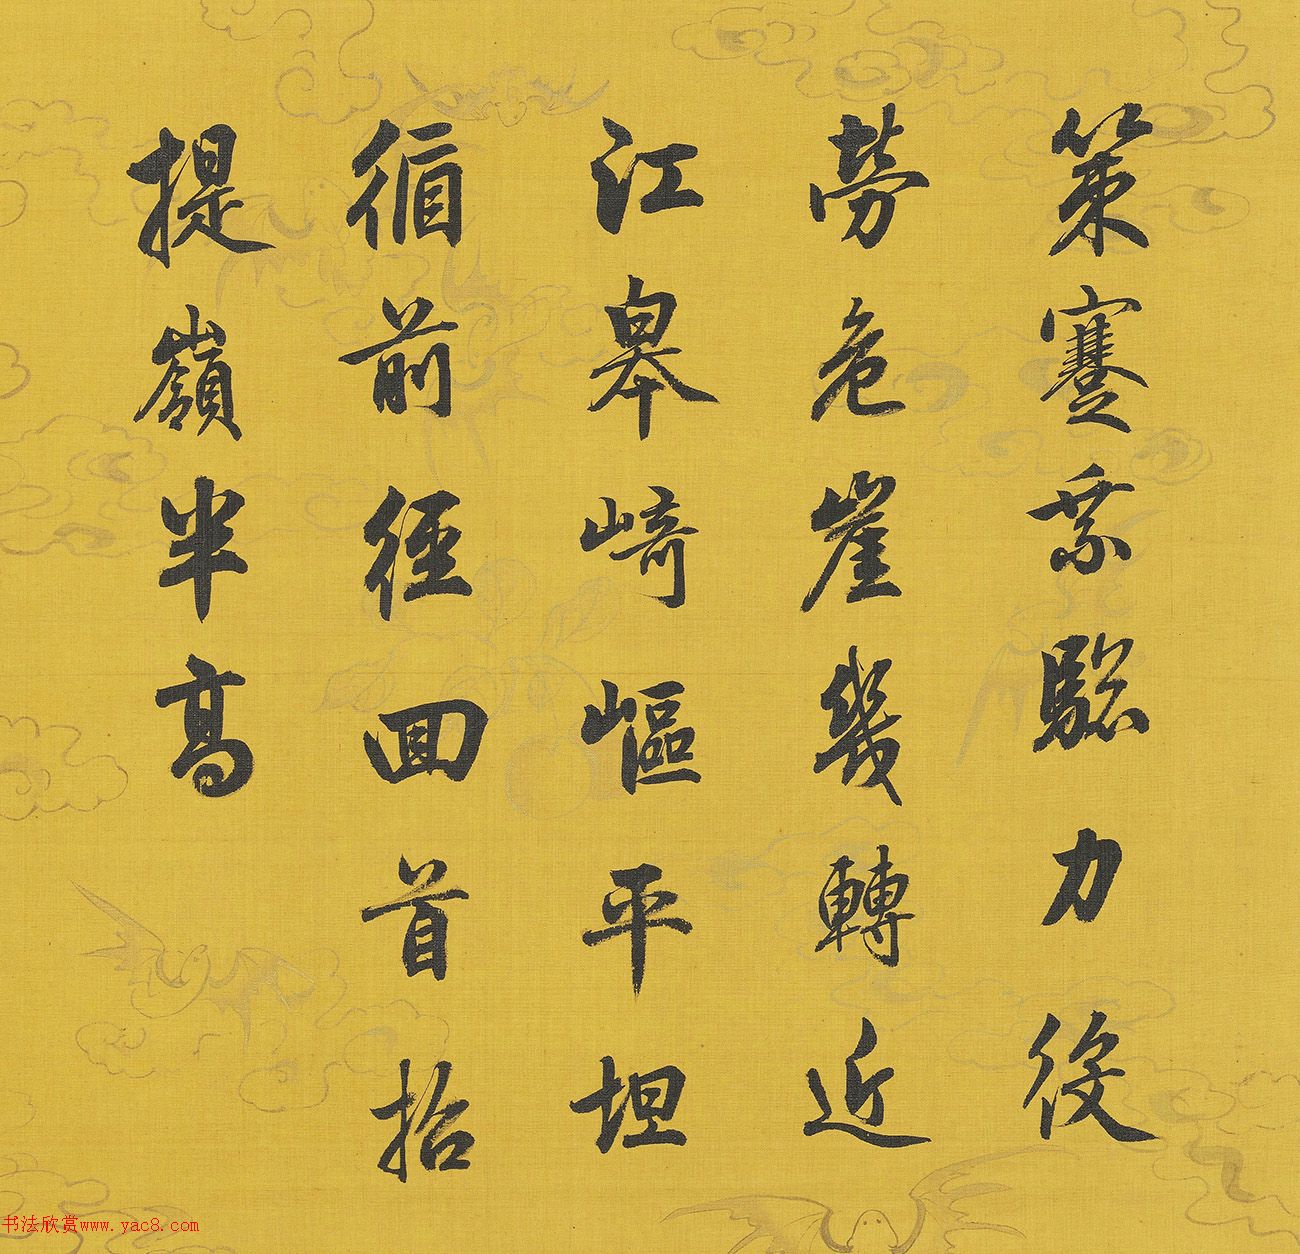 策蹇乘騘力役
勞危崖幾轉近
江皋崎嶇平坦
循前徑回首招
提嶺半高
书法欣赏www.yac8.com